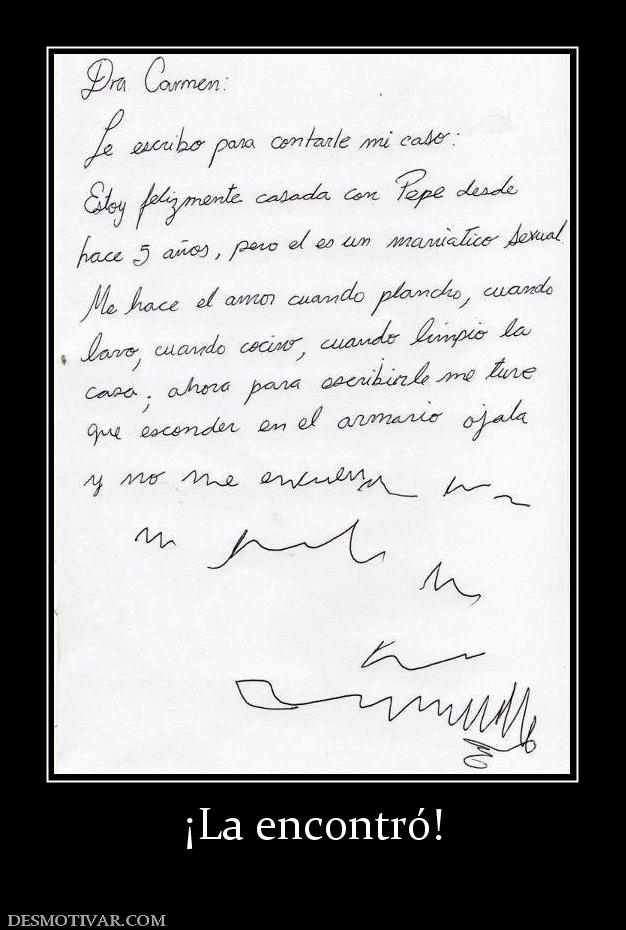 Dra Carmen:
Le escribo para contarle mi caso:
Estoy felizmente casada con Pepe desde
hace 5 años, pero el es un maniatico sexual.
Me hace el amor cuando plancho, cuando
lavo, cuando cocino, cuando limpio la
casa; ahora para escribirle me tuve
que esconder en el armario ojala
y no me encuen
¡La encontró!
DESMOTIVAR.COM